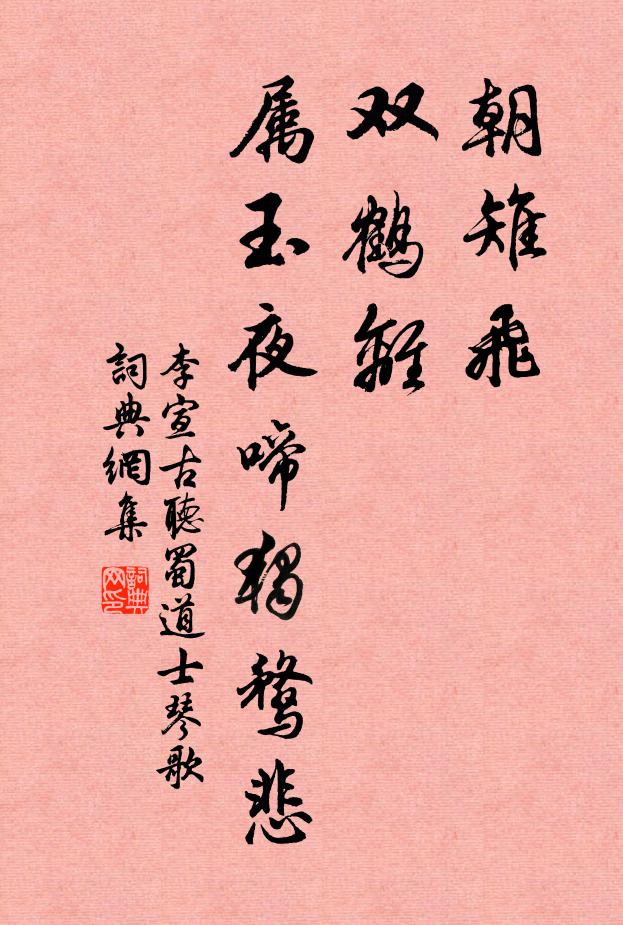 朝雉飛
双鶴離
属玉夜啼獨鶩悲
李宣古聽蜀道士琴歌
詞典網集
詞典
网印